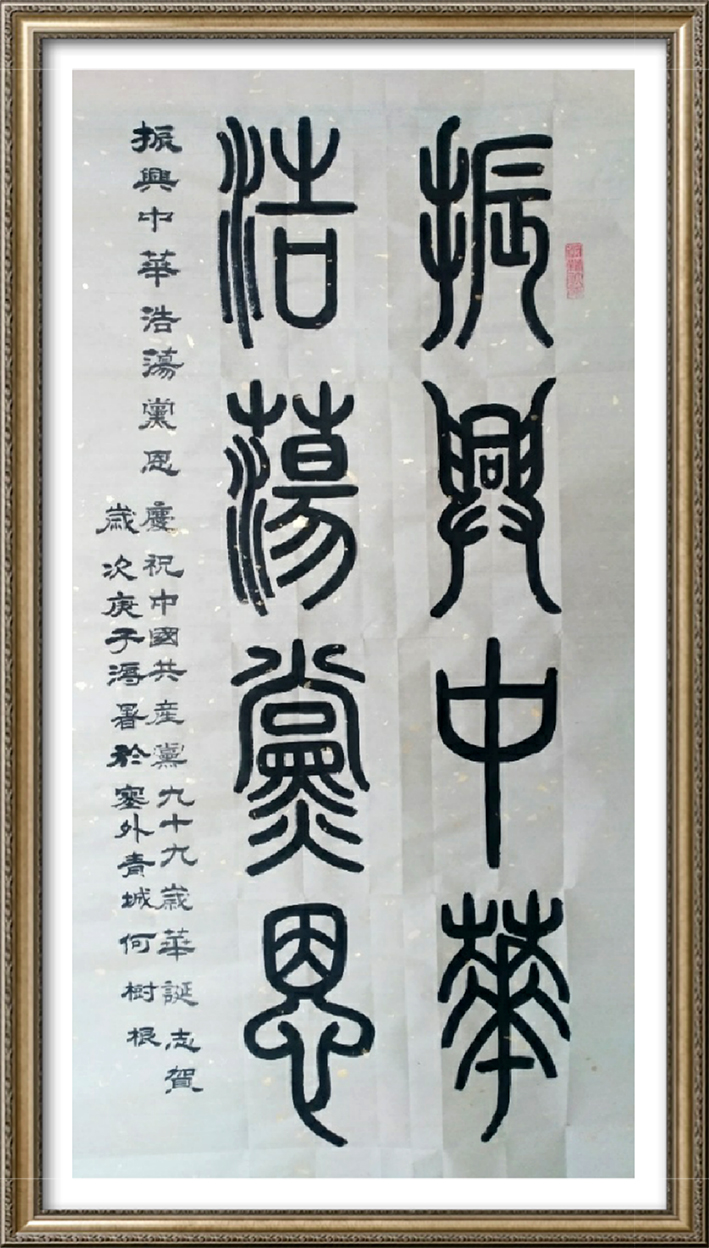 振興中華
浩蕩黨恩
振興中華浩蕩黨恩
慶祝中國共產黨九十九歲華誕志賀
歲次庚子溽暑於塞外青城何樹根